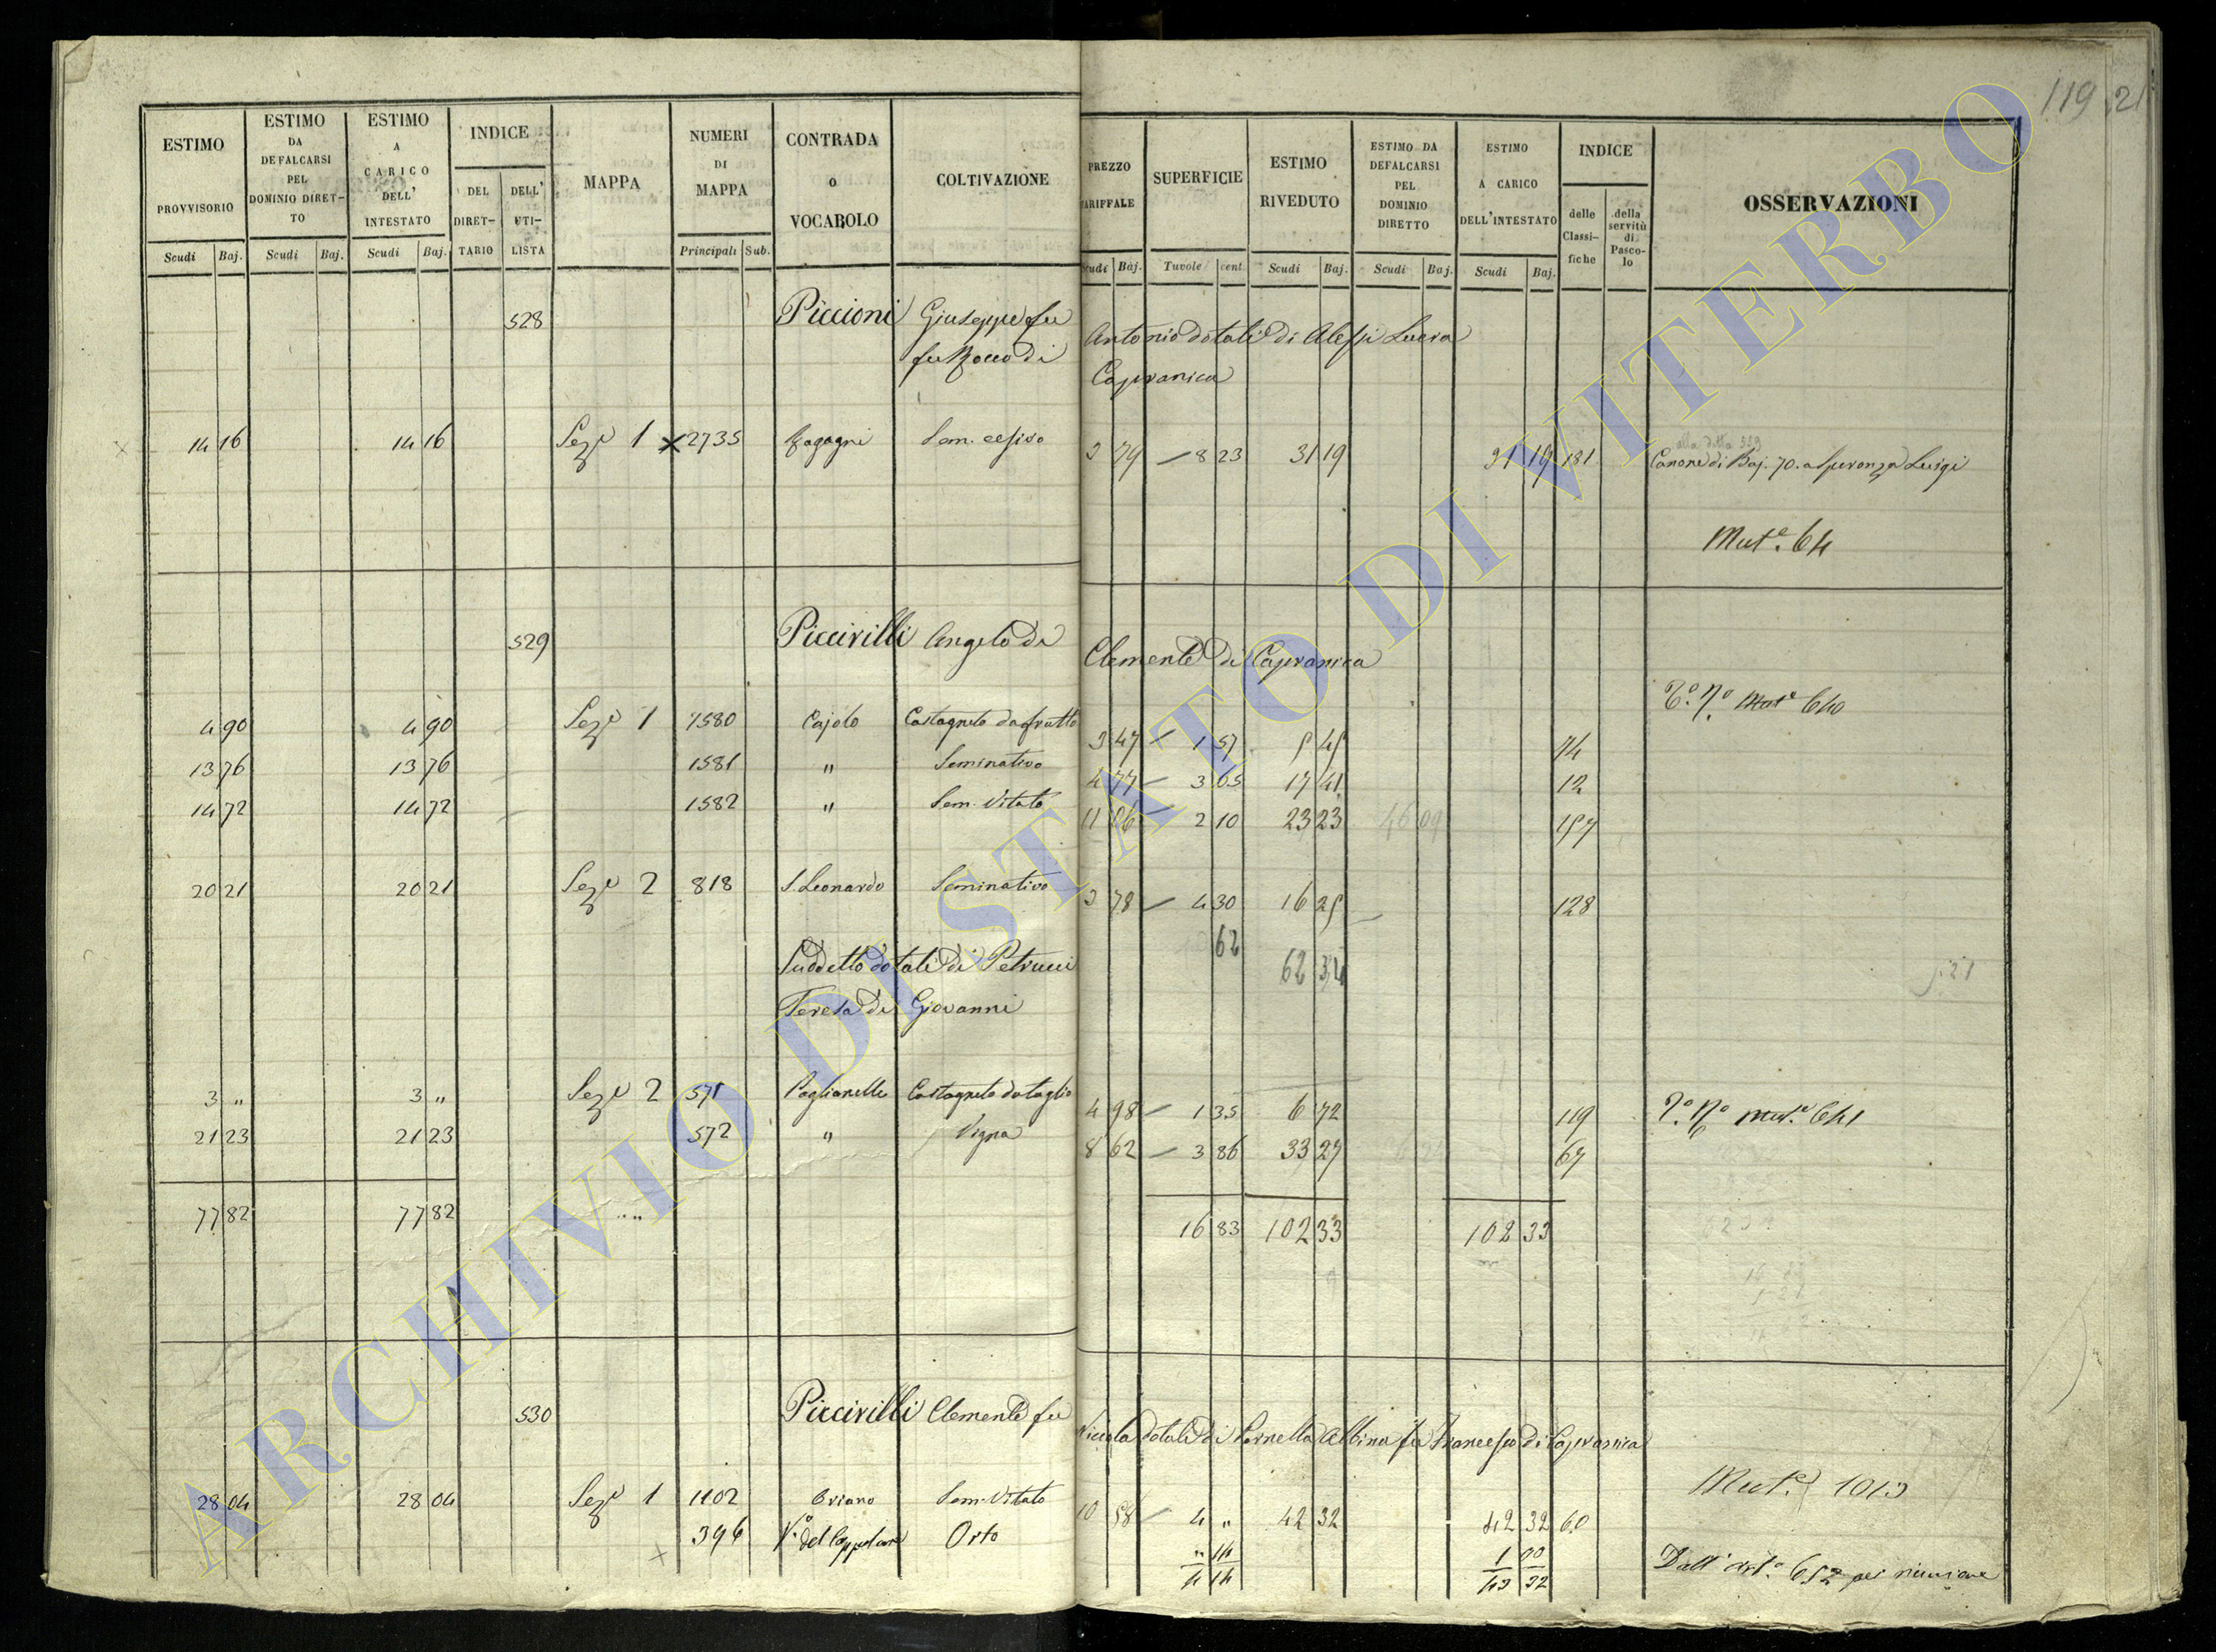 119 21
ESTIMO PROVVISORIO
Scudi Baj.
ESTIMO DA DEFALCARSI PEL DOMINIO DIRET-TO
Scudi Baj.
ESTIMO A CARICO DELL' INTESTATO
Scudi Baj.
INDICE
DEL DIRET-TARIO
DELL' UTI-LISTA
MAPPA
NUMERI DI MAPPA
Principali Sub.
CONTRADA O VOCABOLO
COLTIVAZIONE
PREZZO TARIFFALE
Scudi Baj.
SUPERFICIE
Tavole cent.
ESTIMO RIVEDUTO
Scudi Baj.
ESTIMO DA DEFALCARSI PEL DOMINIO DIRETTO
Scudi Baj.
ESTIMO A CARICO DELL'INTESTATO
Scudi Baj.
INDICE
delle Classi-fiche
della servitù di Pasco-lo
OSSERVAZIONI
528 Piccioni Giuseppe fu Antonio dotale di Alessi Lucia
fu Rocco di Capranica
14 16 14 16 Sez.e 1 2735 Sem. 3 79 8 23 31 19 31 19 181 Canone di Baj. 70. a Speranza Luigi
Mut.e 64
529 Piccirilli Angelo di Clemente di Capranica
4 90 4 90 Sez.e 1 1580 Cajolo Castagneto da frutto 3 47 1 57 5 45 74 Mut.e 640
13 76 13 76 1581 " Seminativo 4 77 3 65 17 41 12
14 72 14 72 1582 " Sem. Vitato 11 06 2 10 23 23 46 09 157
20 21 20 21 Sez.e 2 818 S. Leonardo Seminativo 3 78 4 30 16 25 128
62 62 34
Suddetto dotale di Petrucci
Teresa di Giovanni
3 " 3 " Sez.e 2 571 Paglianelle Castagneto da taglio 4 98 1 35 6 72 119 Mut.e 641
21 23 21 23 572 " Vigna 8 62 3 86 33 27 67
77 82 77 82 16 83 102 33 102 33
530 Piccirilli Clemente fu Niccola dotale di Pornella Albina fu Francesco di Capranica
28 04 28 04 Sez.e 1 1102 Oriano Sem. Vitato 10 58 4 " 42 32 42 32 60 Mut.e 1013
396 V.o del Cappellano Orto " 14 1 00 Dall' art.o 652 per riunione
4 14 43 32
ARCHIVIO DI STATO DI VITERBO